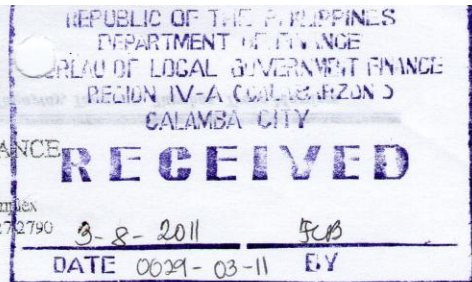 REPUBLIC OF THE PHILIPPINES
DEPARTMENT OF FINANCE
BUREAU OF LOCAL GOVERNMENT FINANCE
REGION IV-A (CALABARZON)
CALAMBA CITY
ANCE
RECEIVED
mplex
2790
3-8-2011 JCB
DATE 0029-03-11 BY